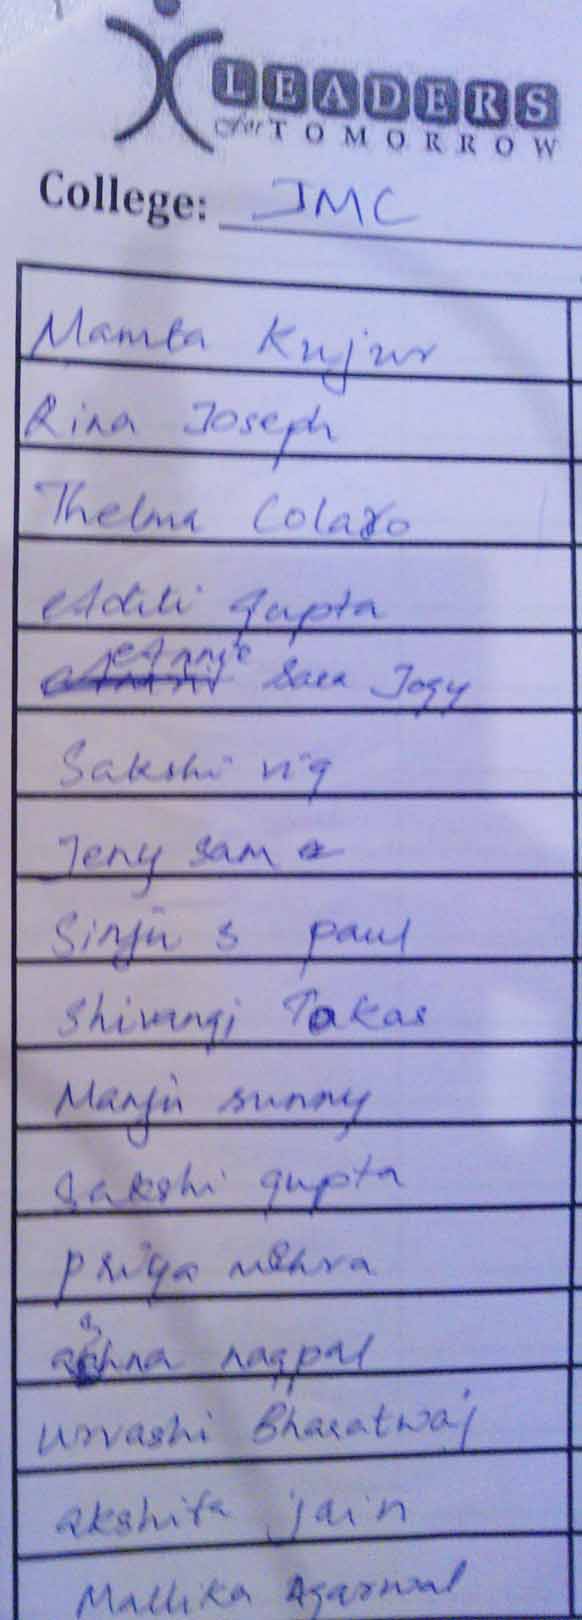 LEADERS
for TOMORROW
College: JMC
Mamta Kujur
Rina Joseph
Thelma Colaso
Aditi Gupta
Annie Sara Jogy
Sakshi vig
Jeny Sam
Sinju s paul
Shivangi Takas
Manju sunny
Sakshi gupta
Priya mehra
ashna nagpal
urvashi Bharatwaj
akshita jain
Mallika Agarwal